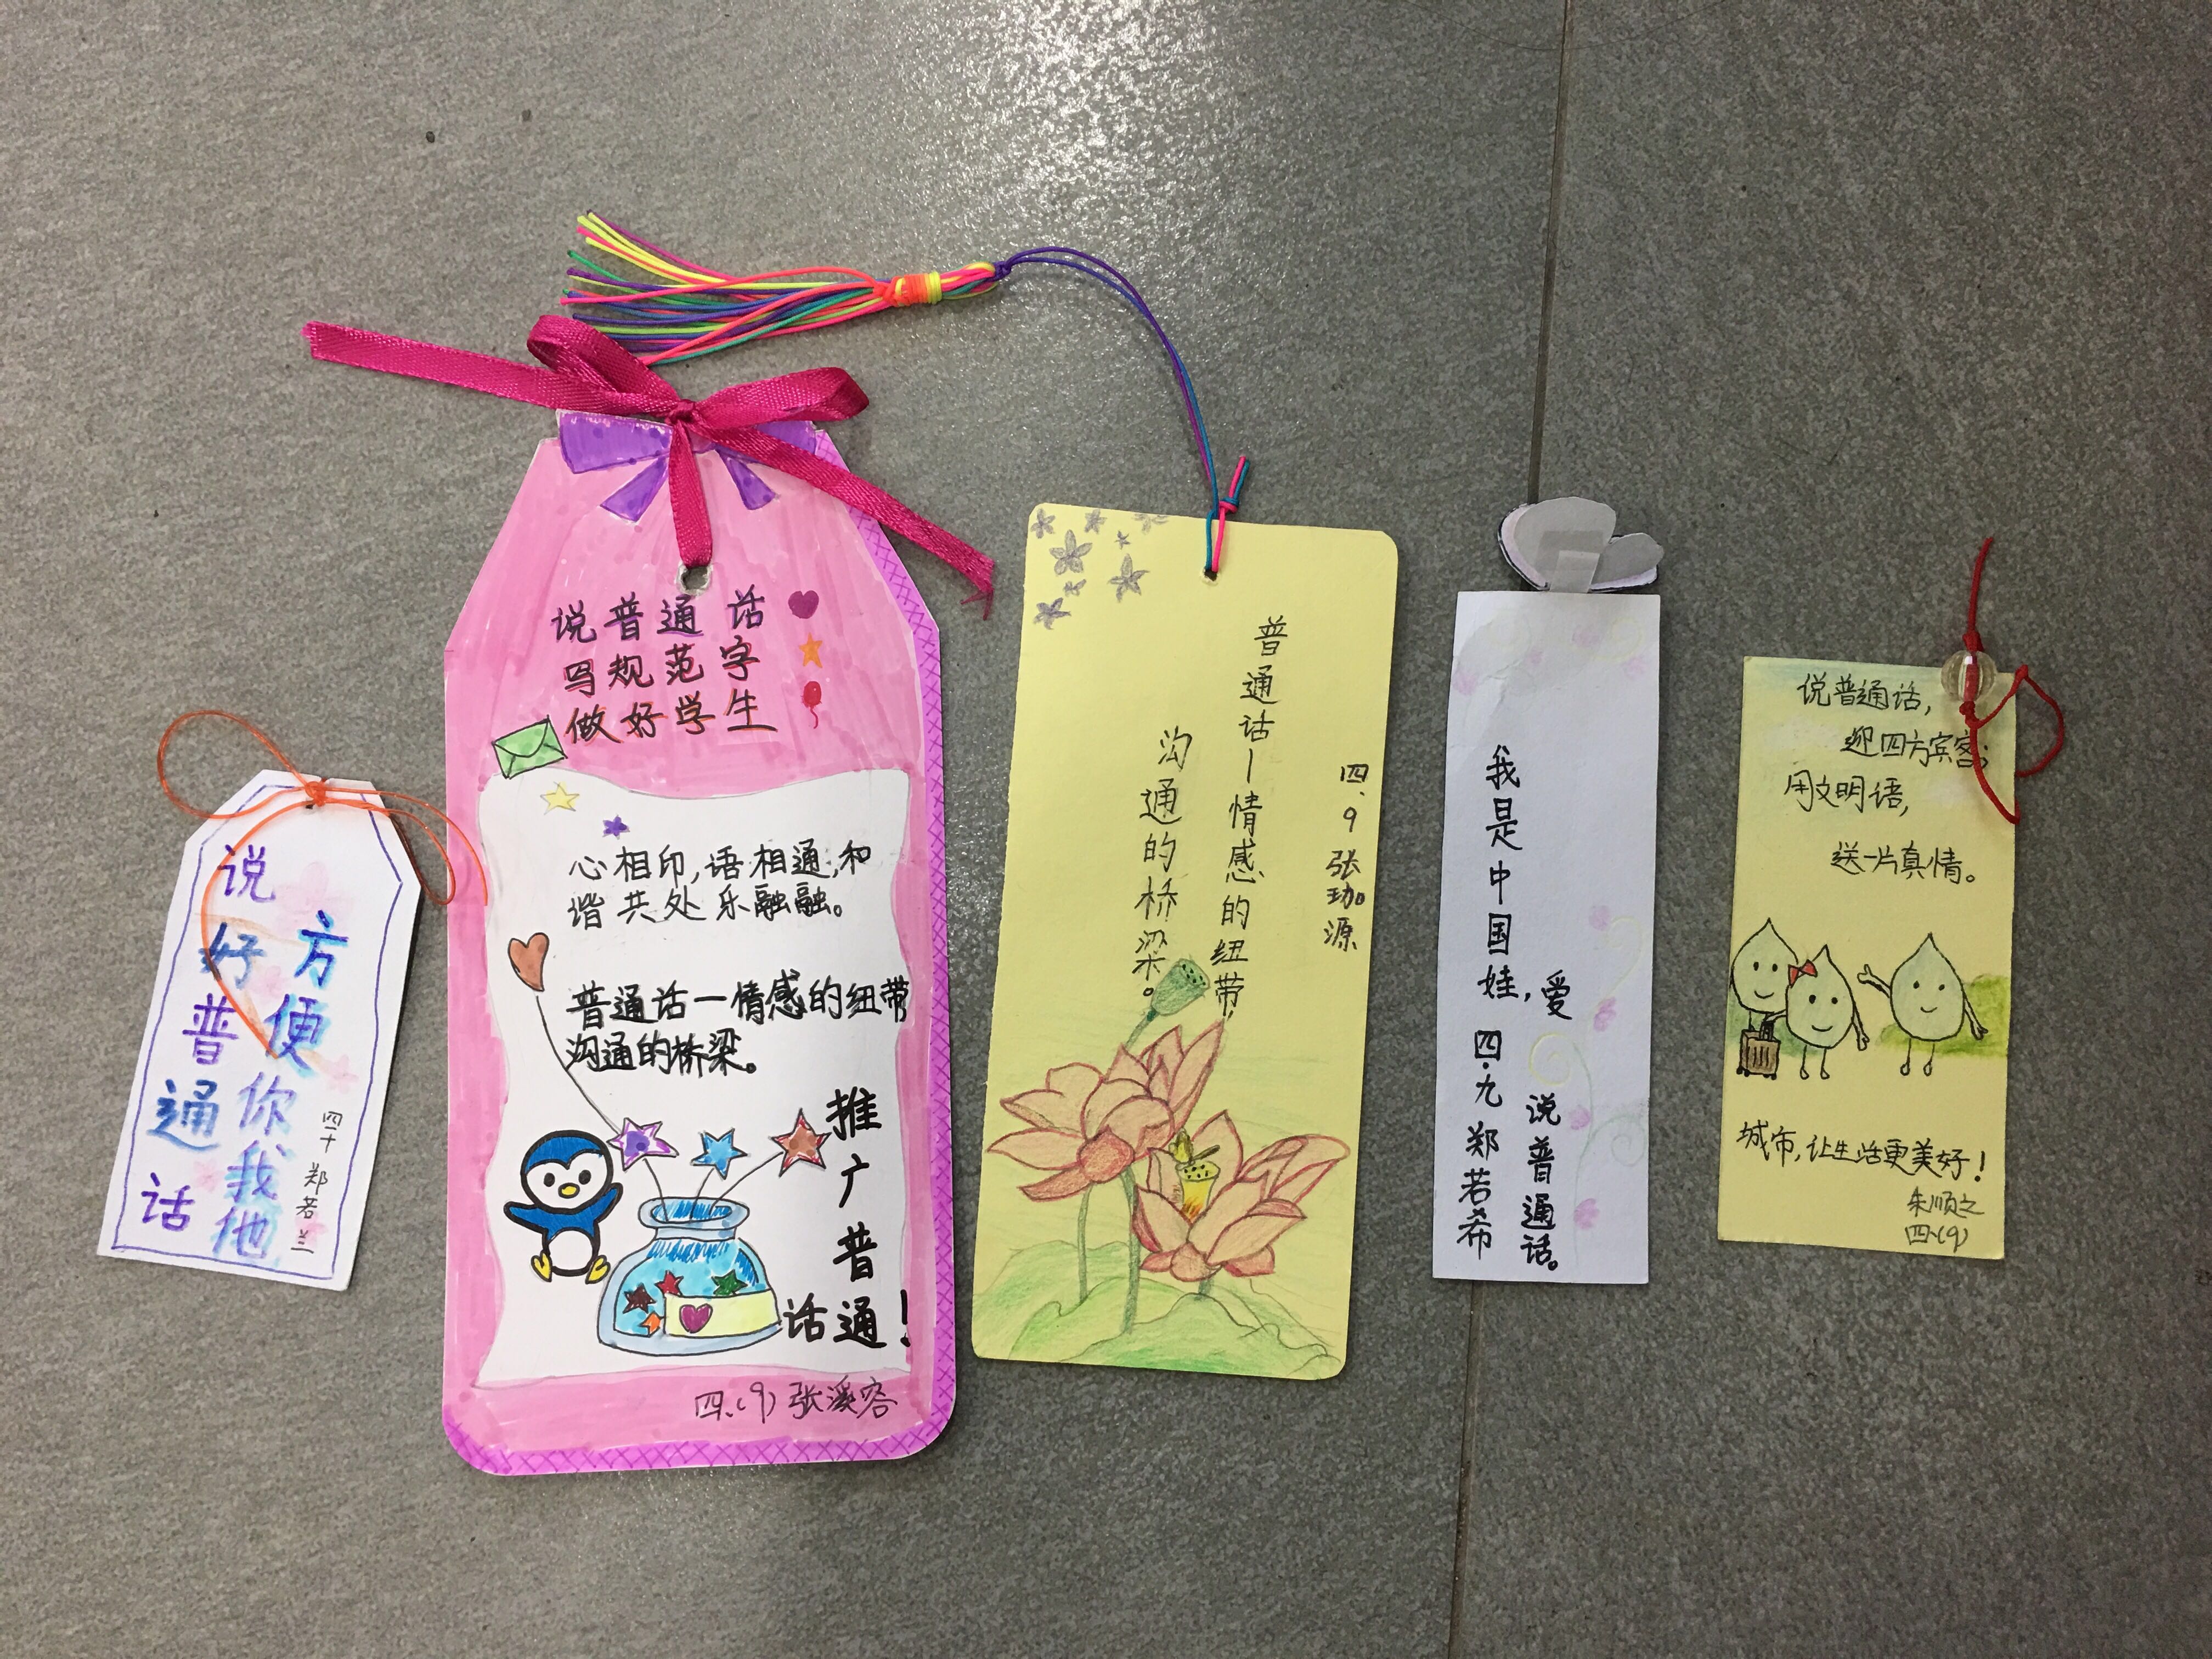 说好普通话
方便你我他
四十 郑若兰
说普通话
写规范字
做好学生
心相印,语相通,和
谐共处乐融融。
普通话一情感的纽带
沟通的桥梁。
推广普通话!
四、(9) 张溪容
普通话一情感的纽带,
沟通的桥梁。
四、9 张珈源
我是中国娃,爱
说普通话。
四·九 郑若希
说普通话,
迎四方宾客;
用文明语,
送一片真情。
城市,让生活更美好!
朱顺之
四、(9)